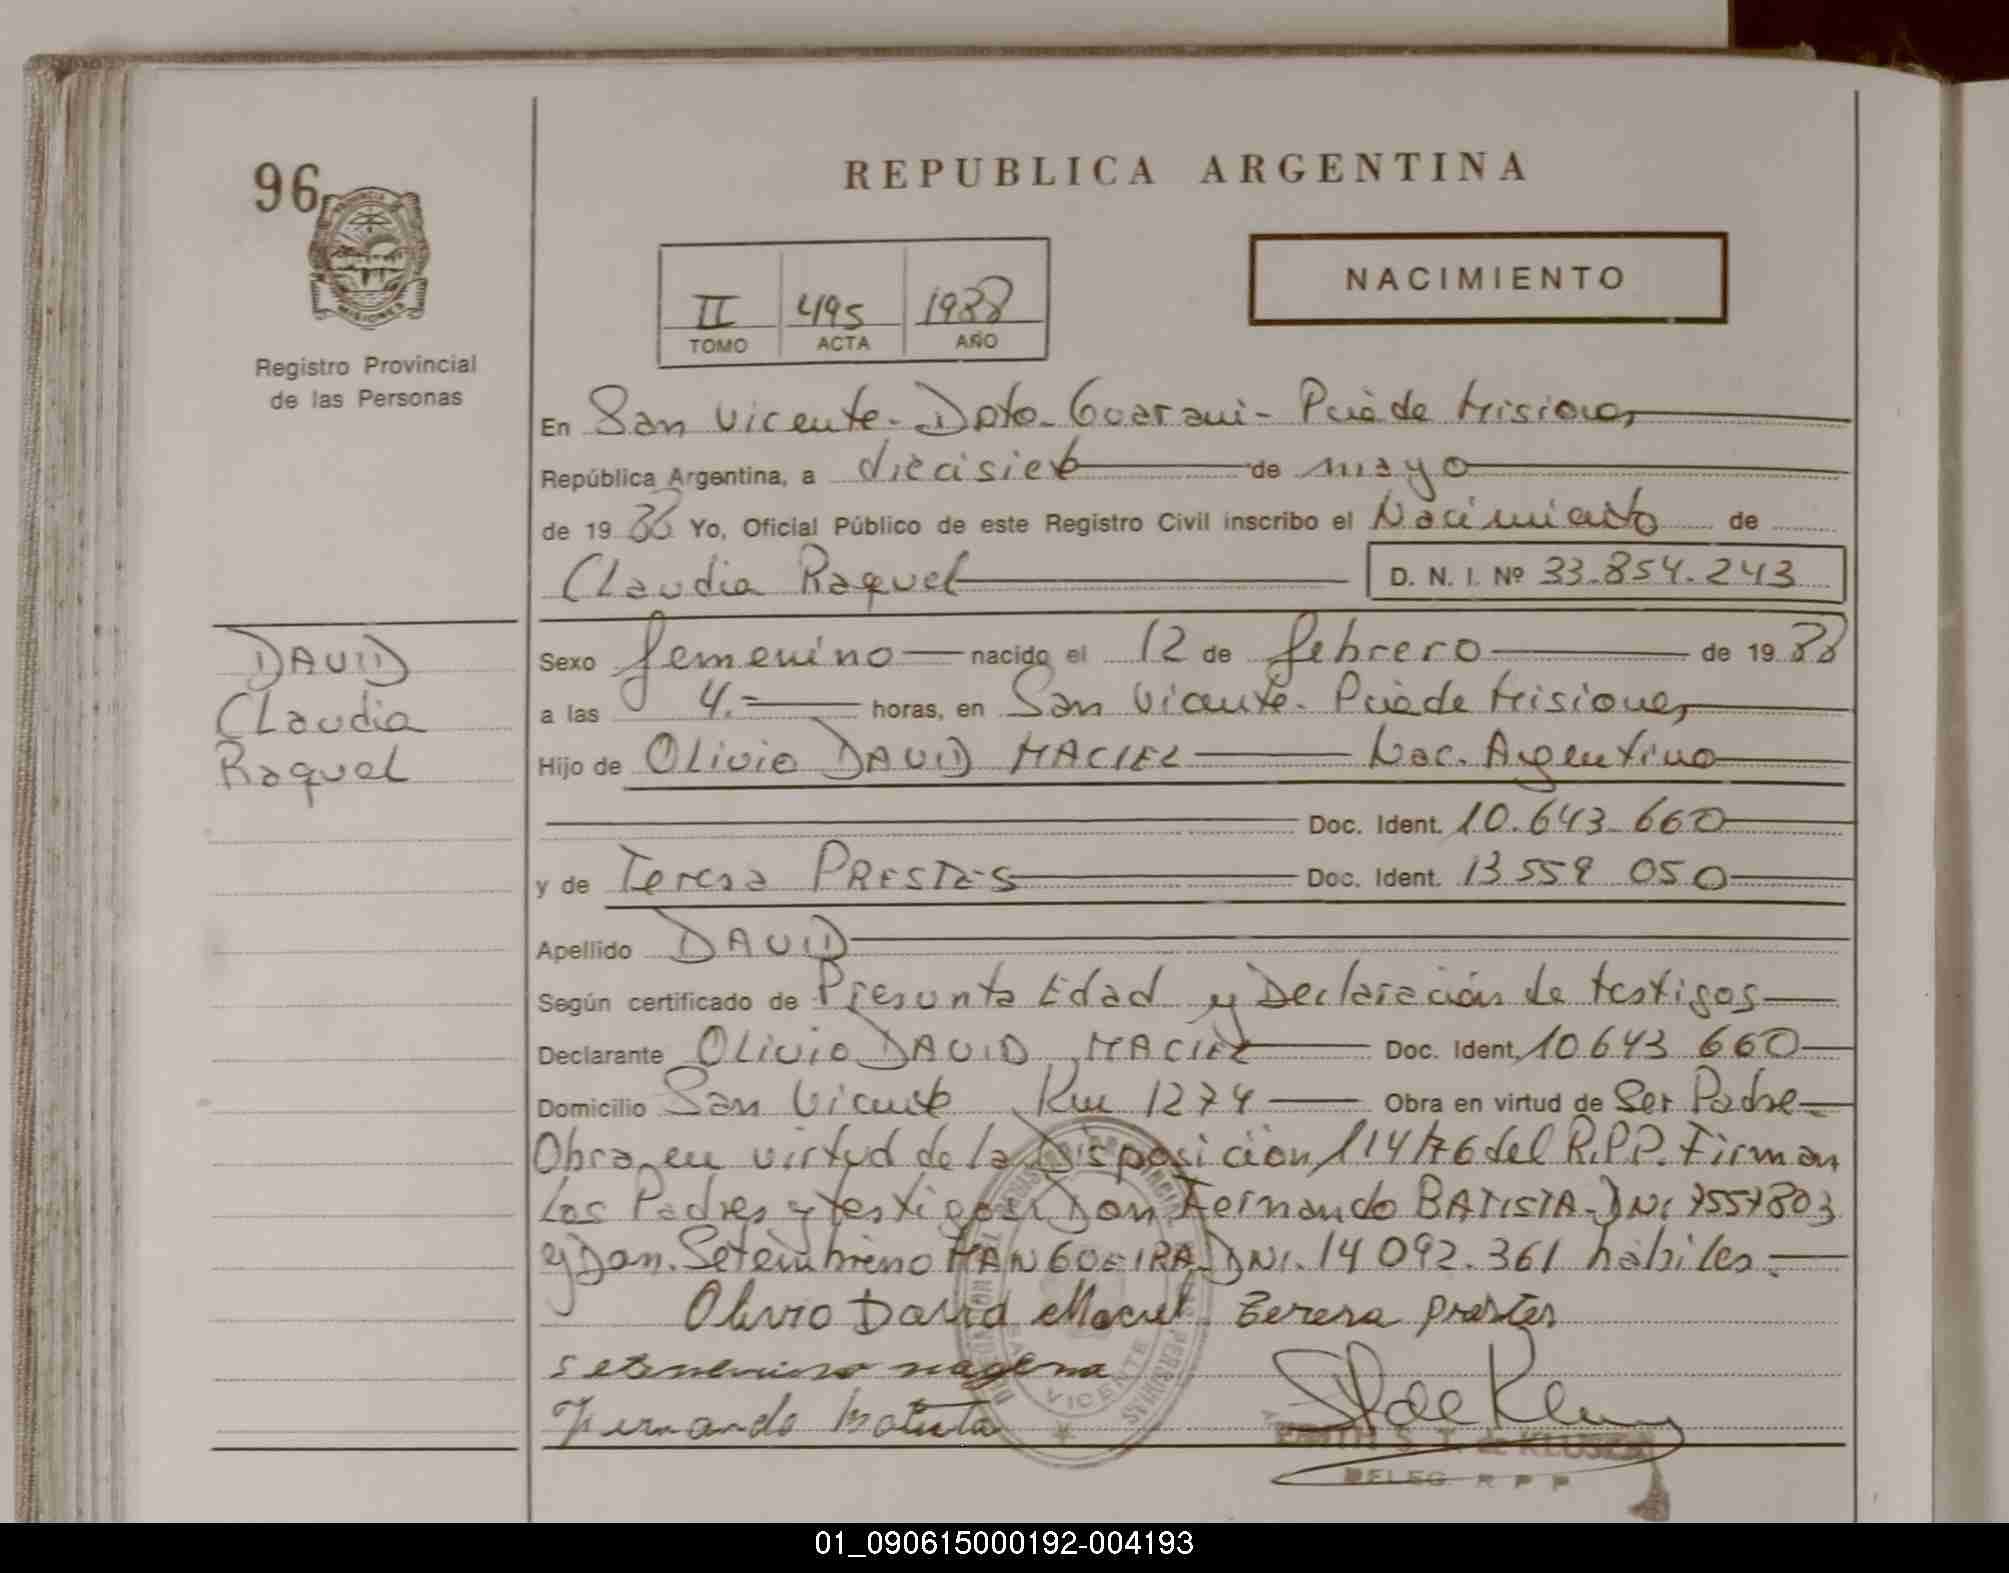 96
REPUBLICA ARGENTINA
NACIMIENTO
II 495 1988
TOMO ACTA AÑO
MISIONES
Registro Provincial
de las Personas
En San Vicente - Dpto. Guarani - Pcia de Misiones
República Argentina, a diecisiete de mayo
de 19 88 Yo, Oficial Público de este Registro Civil inscribo el Nacimiento de
Claudia Raquel D. N. I. Nº 33.854.243
DAVID
Claudia
Raquel
Sexo femenino nacido el 12 de febrero de 19 88
a las 4.= horas, en San Vicente. Pcia de Misiones
Hijo de Olivio DAVID MACIEL Nac. Argentino
Doc. Ident. 10.643.660
y de Teresa PRESTES Doc. Ident. 13 559 050
Apellido DAVID
Según certificado de Presunta Edad y Declaración de testigos
Declarante Olivio DAVID MACIEL Doc. Ident. 10 643 660
Domicilio San Vicente Km 1274 Obra en virtud de Ser Padre
Obra en virtud de la Disposición 114/76 del R.P.P. Firman
los Padres y testigos Don Fernando BATISTA - DNI 7557803
y Don. Setembrino MANGOEIRA - DNI. 14 092.361 habiles.
Olivio David Maciel Teresa prestes
Fernando batista
VICENTE
S. T. de KLUSEN
DELEG. R P P
01_090615000192-004193